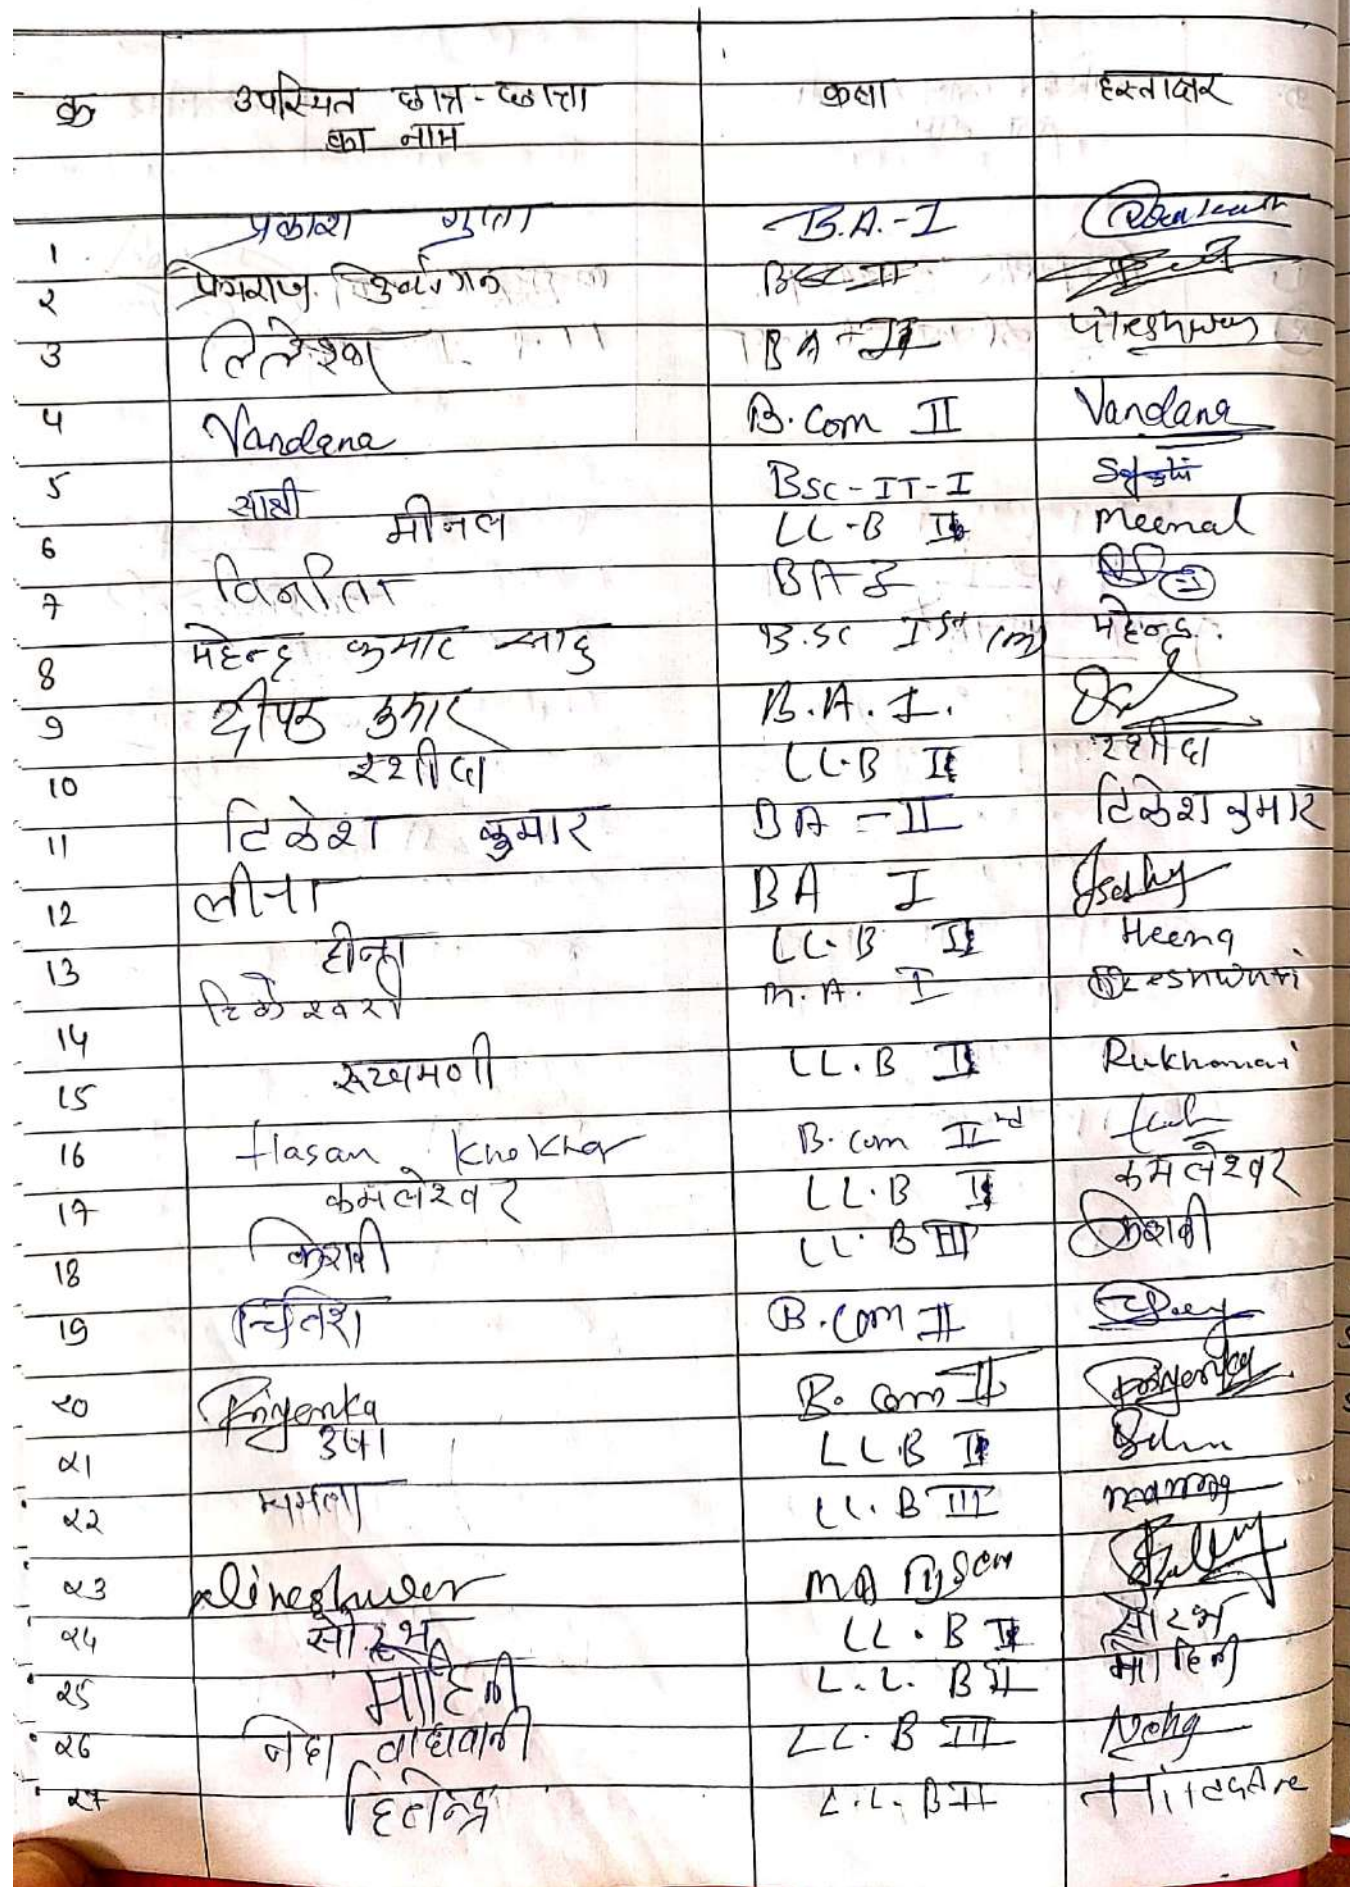 क्र उपस्थित छात्र-छात्रा कक्षा हस्ताक्षर
का नाम
1 प्रकाश गुप्ता B.A.-I
२ प्रेमराज
3 BA-II
4 Vandana B.Com II Vandana
5 साक्षी BSC-IT-I
6 मीनल LL-B II Meenal
7 विनीता BA-I
8 महेन्द्र कुमार साहू B.SC Ist (m) महेन्द्र
9 दीपक कुमार B.A.I.
10 रशीदा LL.B II रशीदा
11 टिकेश कुमार BA-II टिकेश कुमार
12 लीना BA I
13 हीना LL.B II Heena
14 टिकेश्वरी M.A. I
15 रूखमणी LL.B II Rukhamani
16 Hasan Khokhar B.Com IInd
17 कमलेश्वर LL.B II कमलेश्वर
18 केशवी LL.B III केशवी
19 B.Com II
२० Priyenka B.Com II Priyenka
२1 उषा LL.B II
२२ ममता LL.B III
२3 MA
२4 सौरभ LL.B II सौरभ
२5 मोहिनी L.L.B II मोहिनी
२6 नेहा वाधवानी LL.B III Neha
२7 हितेन्द्र L.L.B II